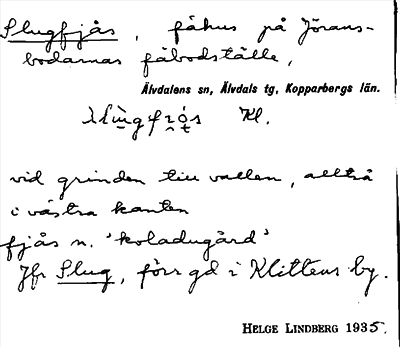 Slugfjås, fähus på Jörans-
bodarnas fäbodställe,
Älvdalens sn, Älvdals tg, Kopparbergs län.
Kl.
vid grinden till vallen, alltså
i västra kanten
fjås n. 'koladugård'
Jfr Slug, förr gd i Klittens by.
HELGE LINDBERG 1935.